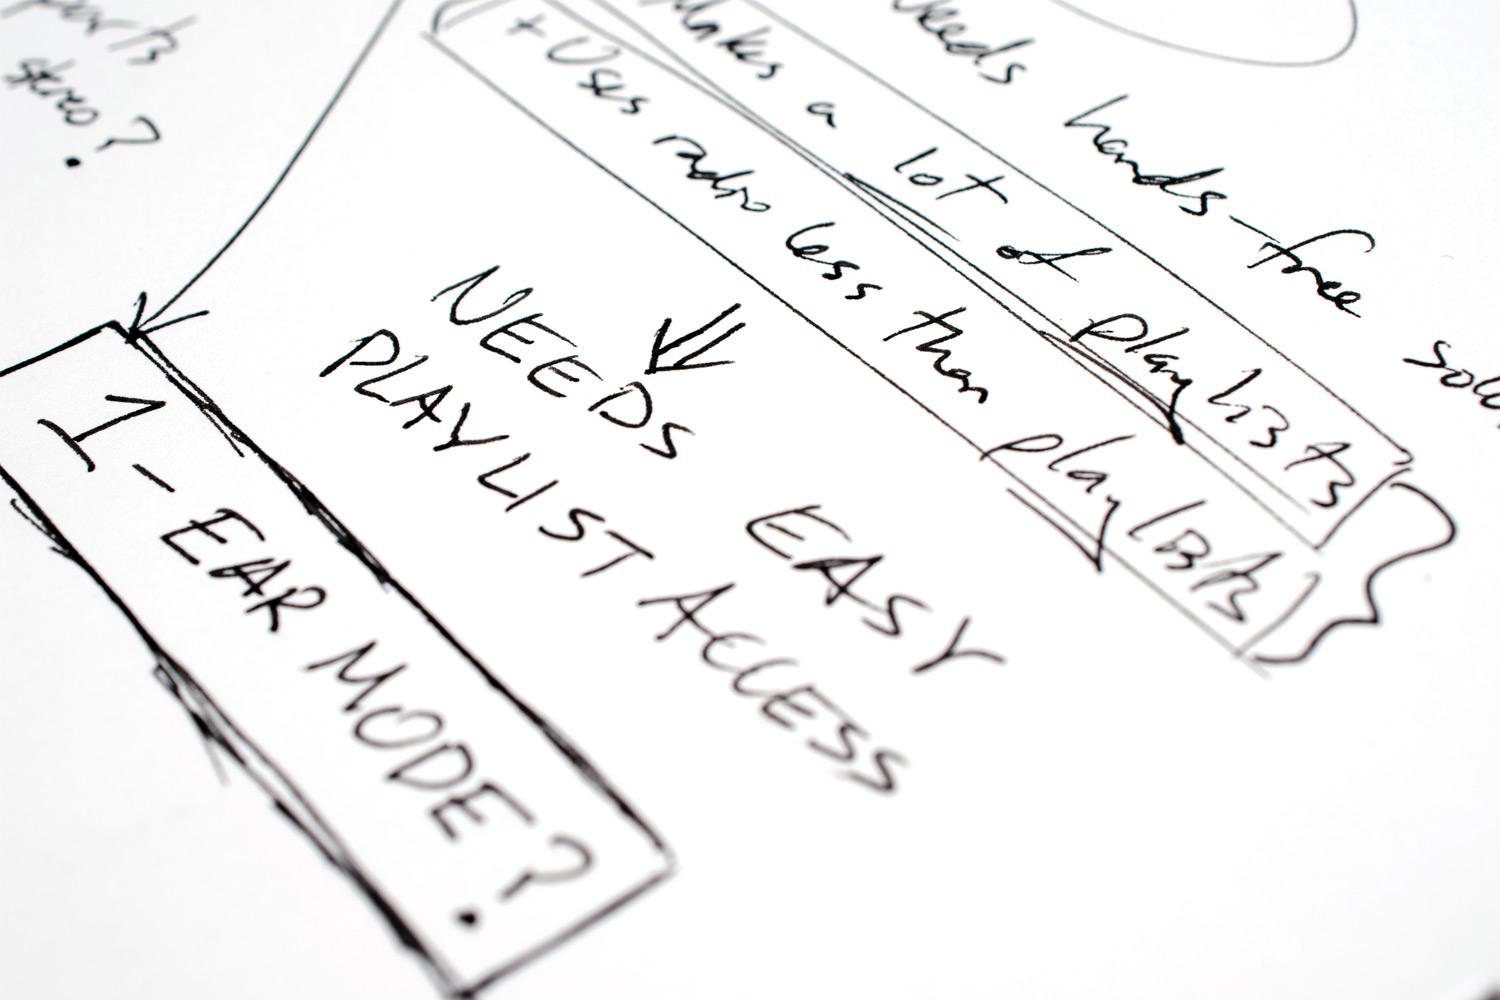 stereo?
Needs hands-free
Makes a lot of playlists
+ Uses radio less than playlists
NEEDS EASY
PLAYLIST ACCESS
1-EAR MODE?